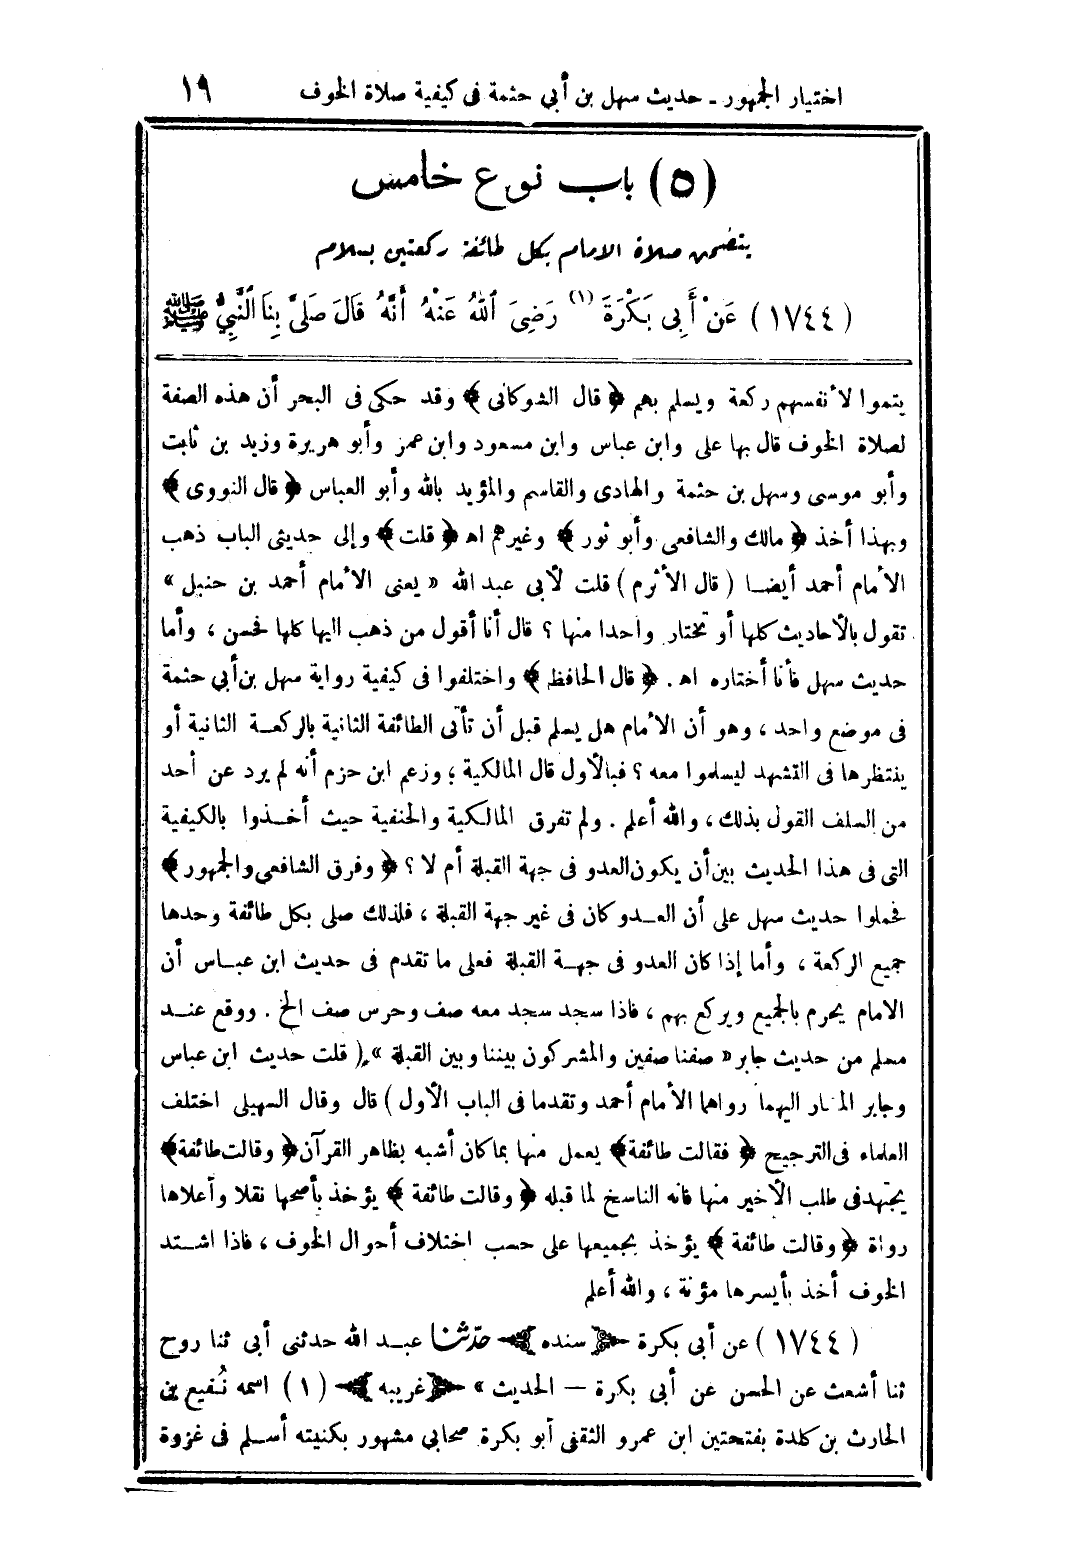 اختيار الجمهور ـ حديث سهل بن أبي حثمة فى كيفية صلاة الخوف ١٩
(٥) باب نوع خامس
يتضمن صلاة الامام بكل طائفة ركعتين بسلام
(١٧٤٤) عَنْ أَبِى بَكْرَةَ (١) رَضِىَ ٱللهُ عَنْهُ أَنَّهُ قَالَ صَلَّى بِنَا ٱلنَّبِيُّ ﷺ
يتموا لأنفسهم ركعة ويسلم بهم ﴿قال الشوكانى﴾ وقد حكى فى البحر أن هذه الصفة
لصلاة الخوف قال بها على وابن عباس وابن مسعود وابن عمر وأبو هريرة وزيد بن ثابت
وأبو موسى وسهل بن حثمة والهادى والقاسم والمؤيد بالله وأبو العباس ﴿قال النووى﴾
وبهذا أخذ ﴿مالك والشافعى وأبو ثور﴾ وغيرهم اهـ ﴿قلت﴾ وإلى حديثى الباب ذهب
الأمام أحمد أيضا (قال الأثرم) قلت لأبى عبد الله « يعنى الأمام أحمد بن حنبل »
تقول بالأحاديث كلها أو تختار واحدا منها ؟ قال أنا أقول من ذهب اليها كلها فحسن ، وأما
حديث سهل فأنا أختاره اهـ . ﴿قال الحافظ﴾ واختلفوا فى كيفية رواية سهل بن أبي حثمة
فى موضع واحد ، وهو أن الأمام هل يسلم قبل أن تأتى الطائفة الثانية بالركعة الثانية أو
ينتظرها فى التشهد ليسلموا معه ؟ فبالأول قال المالكية ؛ وزعم ابن حزم أنه لم يرد عن أحد
من السلف القول بذلك ، والله أعلم . ولم تفرق المالكية والحنفية حيث أخذوا بالكيفية
التى فى هذا الحديث بين أن يكون العدو فى جهة القبلة أم لا ؟ ﴿وفرق الشافعى والجمهور﴾
فحملوا حديث سهل على أن العدو كان فى غير جهة القبلة ، فلذلك صلى بكل طائفة وحدها
جميع الركعة ، وأما إذا كان العدو فى جهة القبلة فعلى ما تقدم فى حديث ابن عباس أن
الامام يحرم بالجميع ويركع بهم ، فاذا سجد سجد معه صف وحرس صف الخ . ووقع عند
مسلم من حديث جابر « صفنا صفين والمشركون بيننا وبين القبلة » (قلت حديث ابن عباس
وجابر المشار اليهما رواهما الأمام أحمد وتقدما فى الباب الأول) قال وقال السهيلى اختلف
العلماء فى الترجيح ﴿فقالت طائفة﴾ يعمل منها بما كان أشبه بظاهر القرآن ﴿وقالت طائفة﴾
يجتهد فى طلب الأخير منها فانه الناسخ لما قبله ﴿وقالت طائفة﴾ يؤخذ بأصحها نقلا وأعلاها
رواة ﴿وقالت طائفة﴾ يؤخذ بجميعها على حسب اختلاف أحوال الخوف ، فاذا اشتد
الخوف أخذ بأيسرها مؤنة ، والله أعلم
(١٧٤٤) عن أبى بكرة ﴿سنده﴾ حدّثنا عبد الله حدثنى أبى ثنا روح
ثنا أشعث عن الحسن عن أبى بكرة — الحديث » ﴿غريبه﴾ (١) اسمه نُفيع بن
الحارث بن كلدة بفتحتين ابن عمرو الثقفى أبو بكرة صحابي مشهور بكنيته أسلم فى غزوة